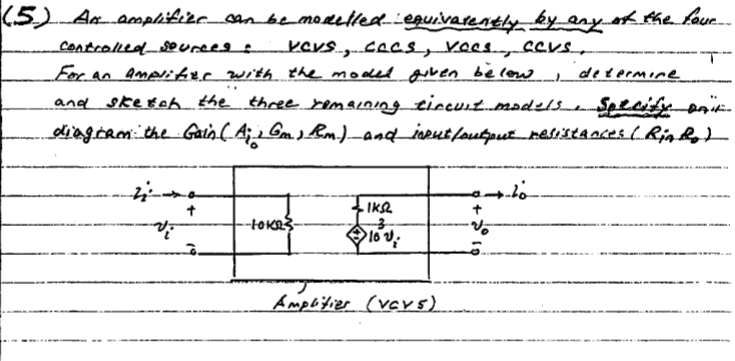 (5) An amplifier can be modelled equivalently by any of the four
controlled sources : VCVS, CCCS, VCCS, CCVS.
For an Amplifier with the model given below, determine
and sketch the three remaining circuit models. Specify on
diagram the Gain (Aio, Gm, Rm) and input/output resistances (Rin Ro)
ii → → io
+ 1KΩ +
vi 10KΩ 10³ vi vo
- -
Amplifier (VCVS)